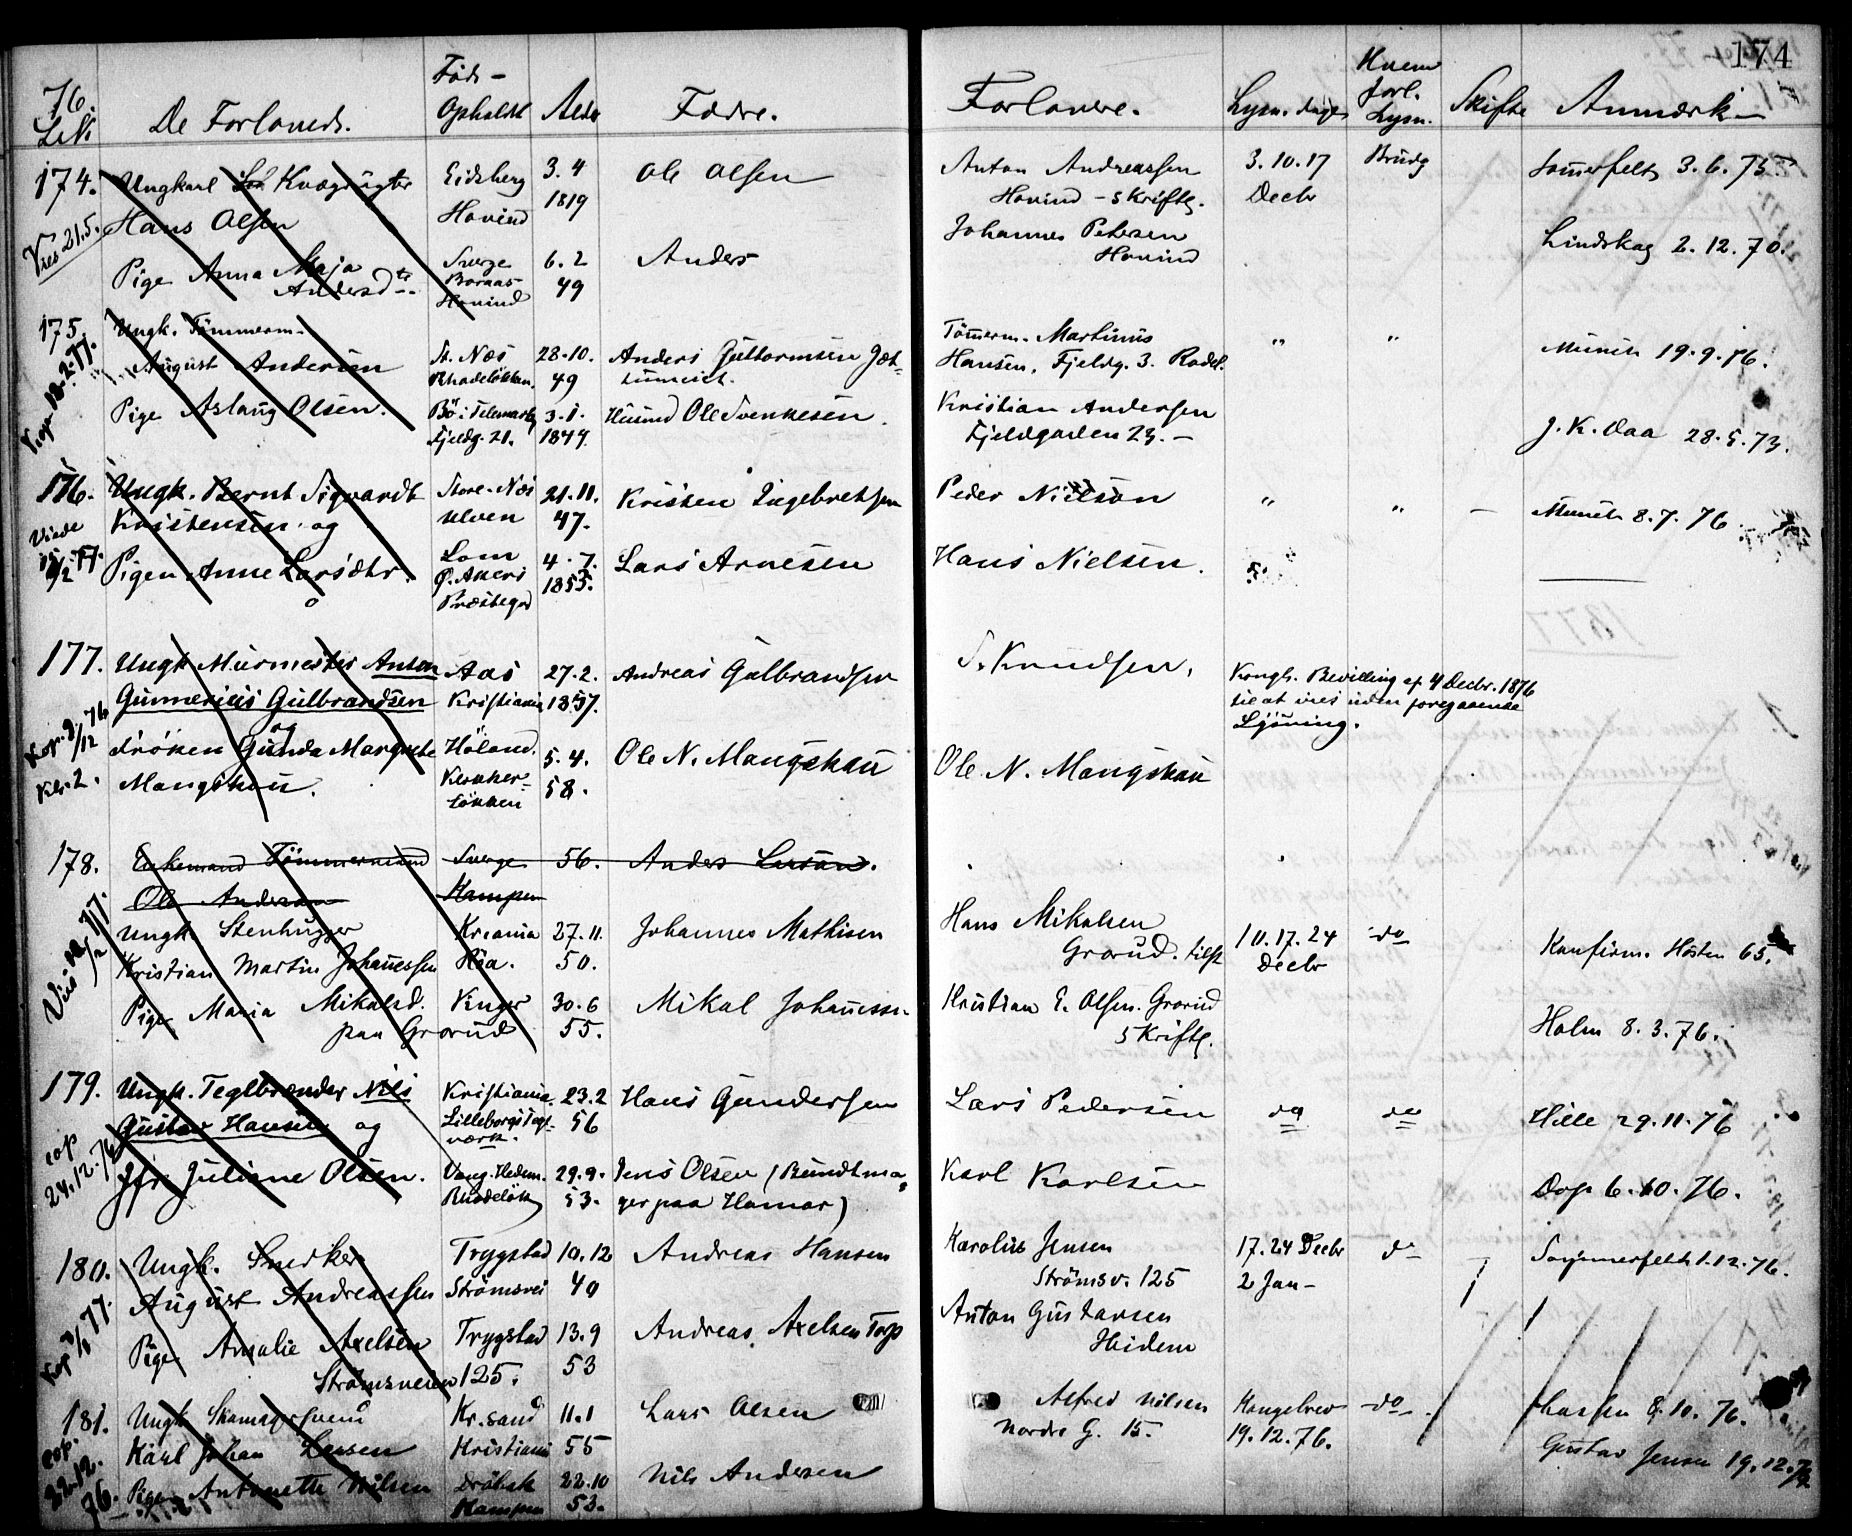 174
76.
De Forlovede.
Føds-
Opholdst
Alder
Fædre.
Forlovere.
Lysn. dage
Hvem forl. Lysn.
Skifte
Anmærk
174. Ungkarl Kvægrøgter Eidsberg 3.4 Ole Olsen Anton Andreassen 3.10.17 Brudg Sommerfelt 3.6.73
Hans Olsen Hovind 1819 Hovind - skriftl. Decbr
Vies 21.5. Johannes Petersen Lindskog 2.12.70.
Pige Anna Maja Sverge 6.2 Anders Hovind
Andersdtr Boraas 49
Hovind
175. Ungk. Tømmerm. Tømerm. Martinus " "
Kop. 18.2.77. August Andersen St. Næs 28.10. Anders Guttormsen Hansen, Fjeldg. 3. Rodel. Munch 19.9.76.
Rhodeløkken. 49
Pige Aslaug Olsen. Bø i Telemark 3.1. Husmd Ole Svenkesen. Kristian Andersen
Fjeldg. 21. 1844. Fjeldgaden 23. - J. K. Daa 28.5.73.
176. Ungk. Bernt Sigvardt Store-Næs 21.11. Kristen Ingebretsen Peder Nielsen " " - Munch 8.7.76
Viede Kristensen og elven 47.
Pigen Anne Larsdtr. Lom 4.7. Lars Arnesen Hans Nielsen.
Ø. Akers 1855.
Præstegrd
177. Ungk. Murmester Anton Aas 27.2. Andreas Gulbrandsen S. Knudsen, Kongl. Bevilling af 4 Decbr. 1876
Gunnerius Gulbrandsen Kristiania 1857. til at vies uden foregaaende
og Lysning.
Kop. 9/12 76 Frøken Gunda Margrethe Høland. 5.4. Ole N. Mangskau Ole N. Mangskau
Kl. 2. Mangskau. Klokker- 58.
løkken
178. Enkemand Tømmermand Sverge 56. Anders Larsen.
Ole Andersen Kampen
Ungk. Stenhugger Kr.ania 27.11. Johannes Mathisen Hans Mikalsen 10.17.24 do Konfirm. Høsten 65.
Kristian Martin Johannessen Hia. 50. Grorud. tilst Decbr
Pige Maria Mikalsd. Vinger 30.6 Mikal Johannessen Kristian E. Olsen. Grorud
paa Grorud 55. Skriftl. Holm 8.3.76.
179. Ungk. Teglbrænder Nils Kristiania 23.2 Hans Gundersen Lars Pedersen do do Hille 29.11.76
Gustav Hansen og Lilleborgs Tegl- 56
værk.
cop 24.12.76 Jfr. Juliane Olsen. Vang. Hedem. 29.9. Jens Olsen (Bundtma- Karl Karlsen Dop 6.10.76.
Rhodeløk 53. ger paa Hamar)
180. Ungk. Snedker Trygstad 10.12 Andreas Hansen Karolius Jensen 17.24 Decbr do Sommerfeldt 1.12.76.
August Andreassen Strømsvei 49 Strømsv. 125 2 Jan-
Pige Amalie Axelsen Trygstad 13.9 Andreas Axelsen Torp Anton Gustavsen
Strømsveien 125. 53 Heidem
181. Ungk Skomagersvend Kr.sand 11.1 Lars Olsen Alfred Nilsen Kongebrev do Larsen 8.10.76.
cop. 22.12. 76. Karl Johan Larsen Kristiania 55 Nordre G. 15. 19.12.76.
Pige Antonette Nilsen Drøbak 22.10 Nils Andersen Gustav Jensen 19.12.76
Kampen 53.